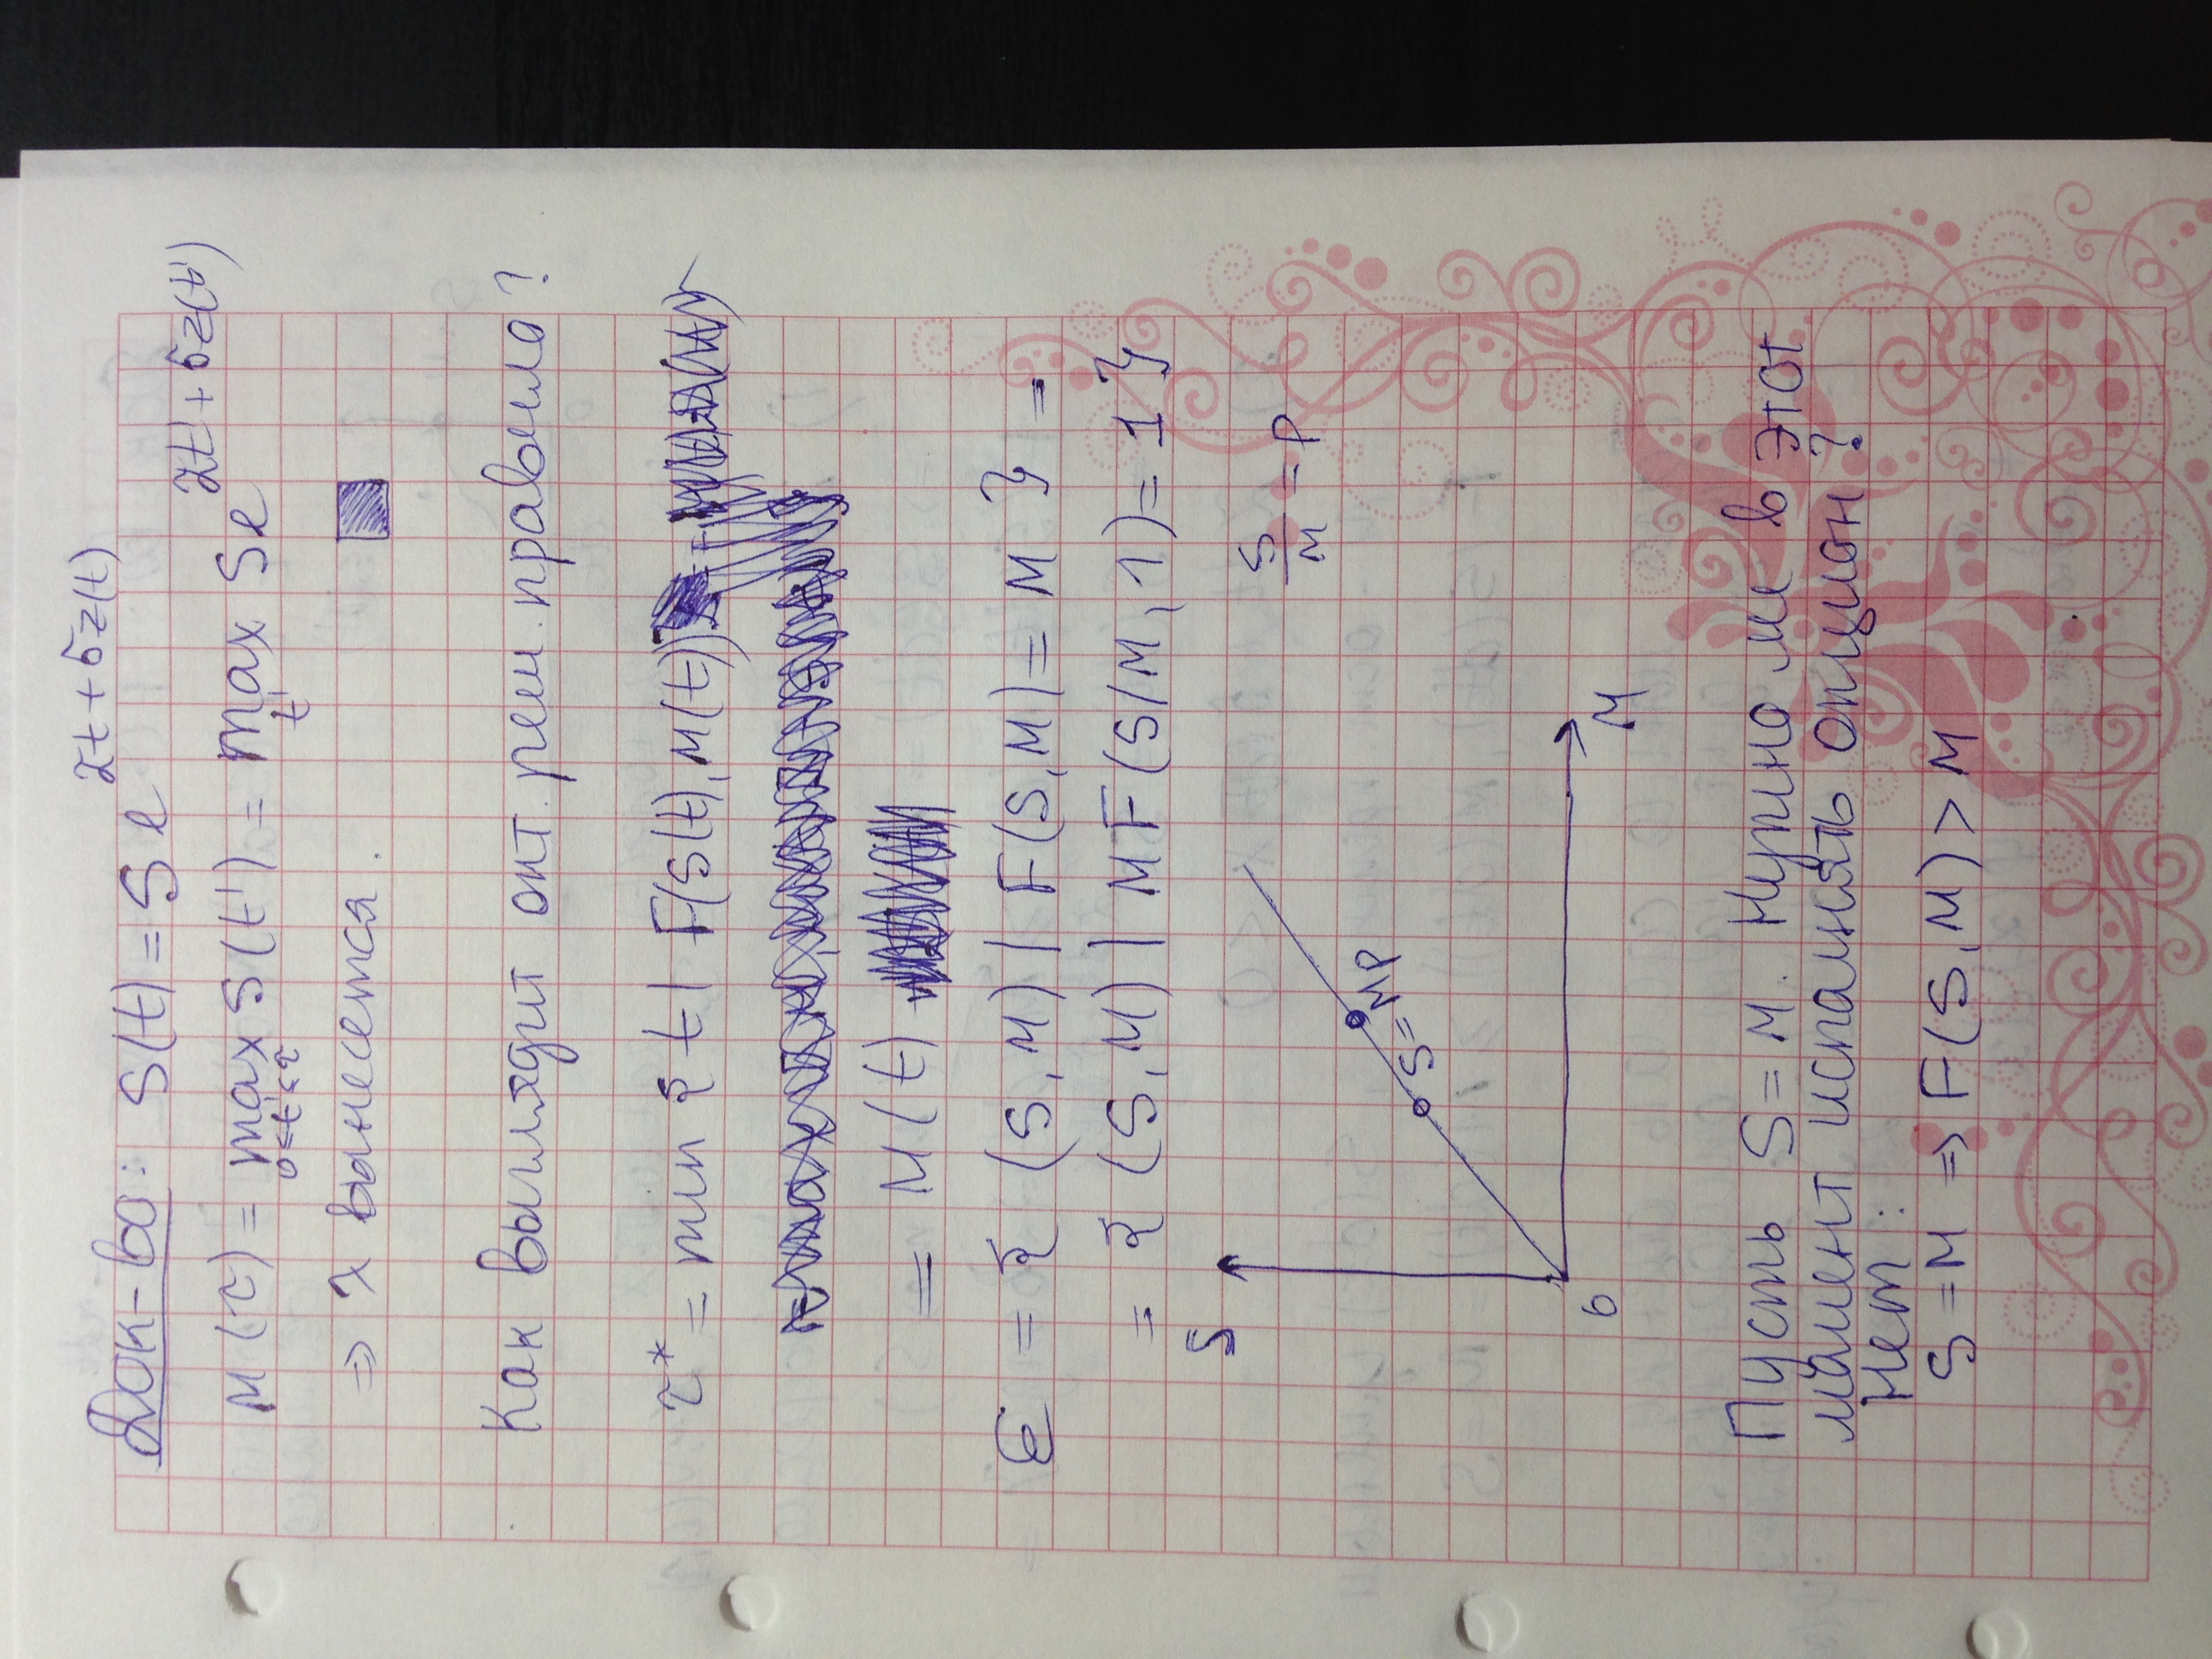 Док-во: S(t) = S e^{λt + σz(t)}
M(τ) = max_{0≤t'≤τ} S(t') = max_{t'} S e^{λt' + σz(t')}
⇒ λ вынесется.
Как выглядит опт. реш. правило?
τ* = min { t | F(S(t), M(t))
= M(t)
= { (S, M) | F(S, M) = M } =
= { (S, M) | M F(S/M, 1) = 1 }
S/M = P
S
S = MP
M
0
Пусть S = M. Нужно ли в этот
момент исполнять опцион?
Нет:
S = M ⇒ F(S, M) > M